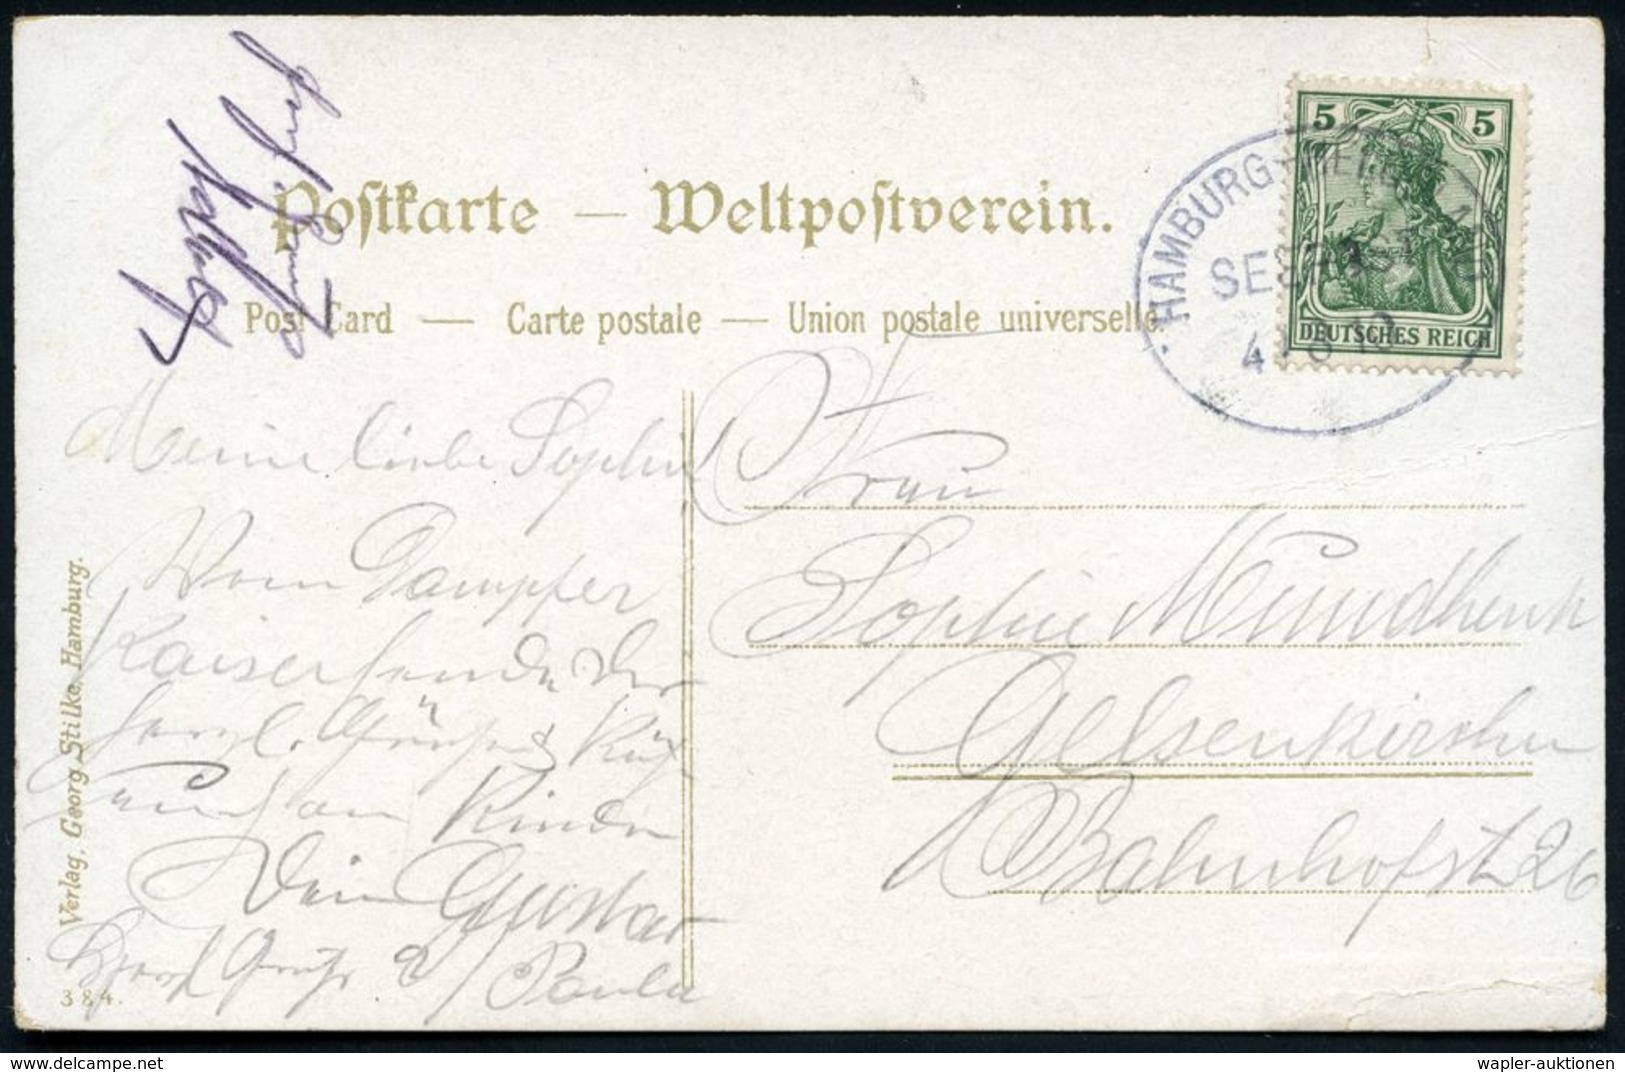 Postkarte — Weltpostverein.
Post Card — Carte postale — Union postale universelle.
5 5
DEUTSCHES REICH
HAMBURG
SE
4
Meine liebe Sophie
Vom Dampfer
Kaiser sende Dir
herzl. Grüße & Küße
auch an Kinder
Dein Gustav
Herzl Gruß Paula
Frau
Sophie Mundhenk
Gelsenkirchen
Bahnhofst 26
Verlag, Georg Stilke, Hamburg.
384.
(c) www.delcampe.net
wapler-auktionen